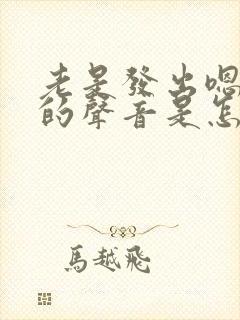 老是發出嗯
的聲音是怎
馬越飛